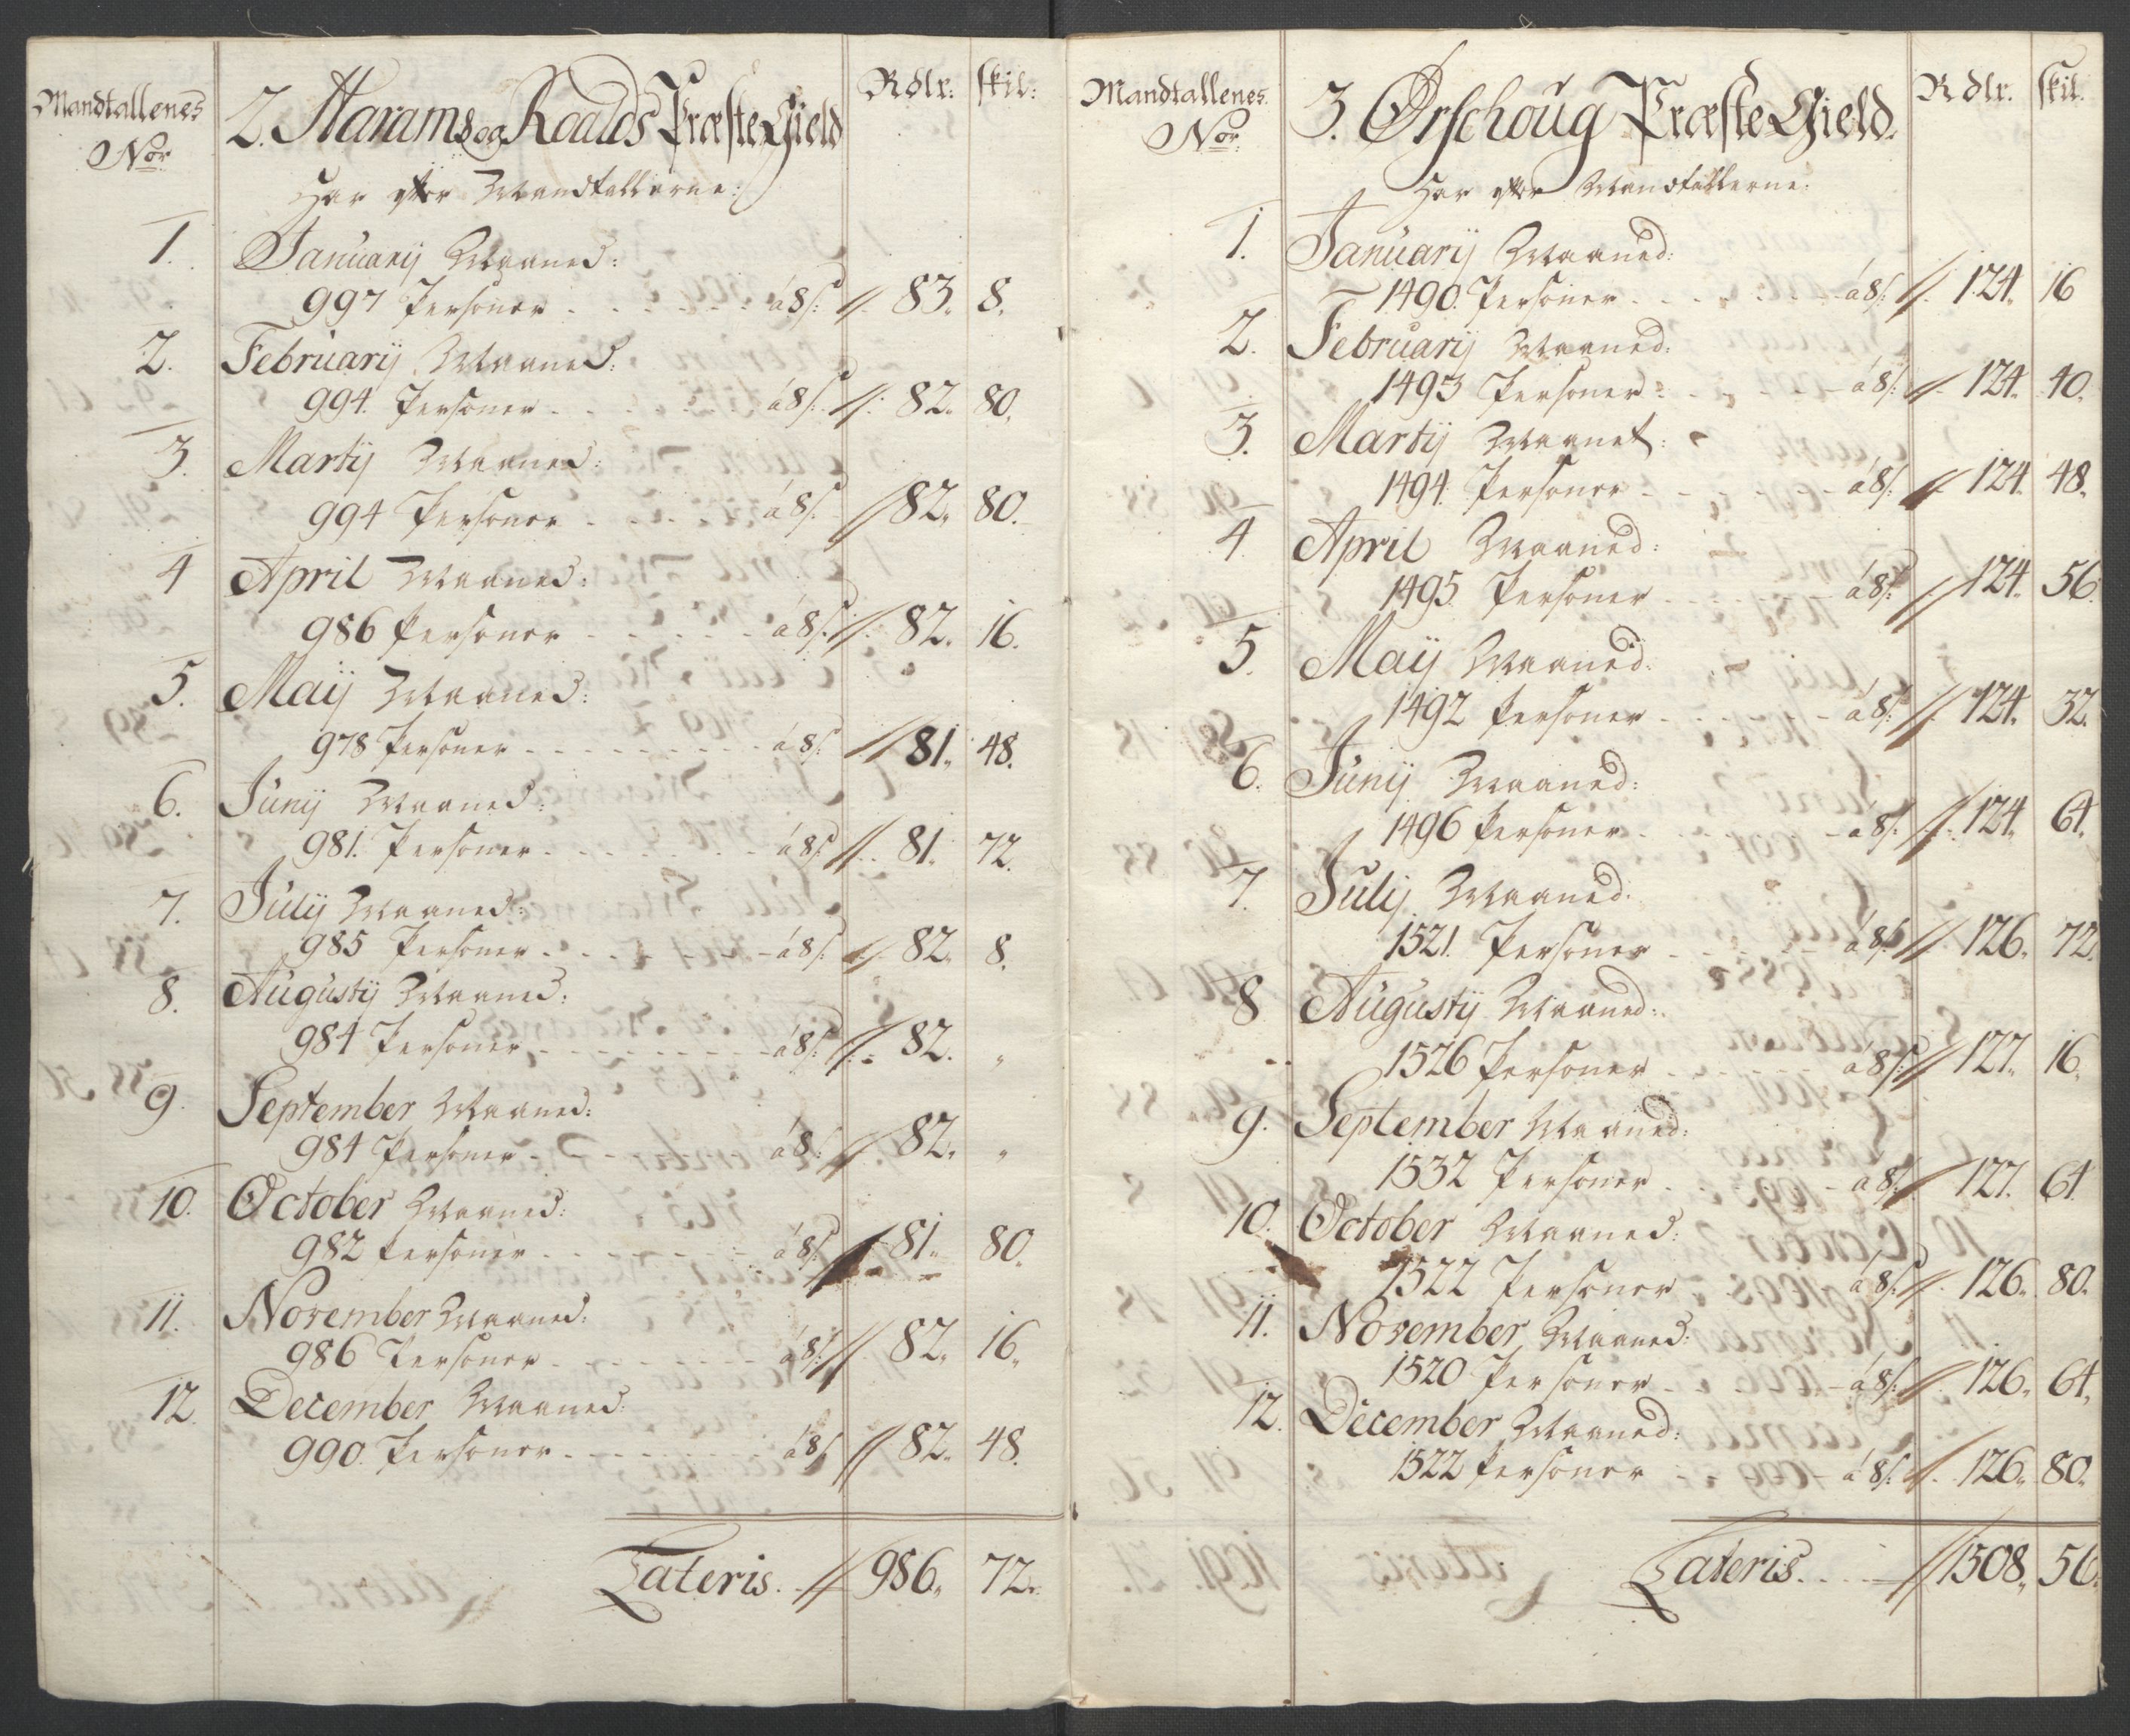 Mandtallenes
No
2. Harams og Roalds Præste Gield
Rdlr: skil:
Har efter Mandtallerne:
1. Januarij Maaned:
997 Personer - - - - - - - á 8 s: // 83. 8.
2. Februarij Maaned:
994. Personer - - - - - - - á 8 s: // 82. 80.
3. Martij Maaned:
994 Personer - - - - - - á 8 s: // 82. 80.
4 April Maaned:
986 Personer - - - - - - á 8 s: // 82. 16.
5. Maij Maaned:
978 Personer - - - - - - - - á 8 s: // 81. 48.
6. Junij Maaned:
981. Personer - - - - - - - á 8 s: // 81. 72.
7. Julij Maaned:
985 Personer - - - - - - - á 8 s: // 82. 8.
8. Augustij Maaned:
984 Personer - - - - - - - - á 8 s: // 82. "
9. September Maaned:
984 Personer - - - - á 8 s: // 82. "
10. October Maaned:
982 Personer - - - - - - - á 8 s: // 81. 80.
11. November Maaned:
986 Personer - - - - - - - á 8 s: // 82. 16.
12. December Maaned:
990. Personer - - - - - - - á 8 s // 82. 48.
Lateris. - // 986. 72.
Mandtallenes
No
3. Ørschoug Præste Gield.
Rdlr. skil.
Har efter Mandtallerne:
1. Januarij Maaned:
1490. Personer - - - - - - á 8 s: // 124. 16
2. Februarij Maaned:
1493 Personer - - - - - á 8 s: // 124. 40.
3. Martij Maanet:
1494. Personer - - - - - - á 8 s: // 124. 48.
4. April Maaned:
1495. Personer - - - - - á 8 s: // 124. 56.
5. Maij Maaned:
1492 Personer - - - - - á 8 s: // 124. 32.
6. Junij Maaned:
1496 Personer - - - - - á 8 s: // 124. 64.
7. Julij Maaned:
1521. Personer - - - - - á 8 s: // 126. 72.
8 Augustij Maaned:
1526 Personer - - - - - á 8 s: // 127. 16.
9. September Maaned:
1532 Personer - - - - - á 8 s: // 127. 64.
10. October Maaned:
1522 Personer - - - á 8 s: // 126. 80.
11. November Maaned:
1520 Personer - - - - - á 8 s: // 126. 64.
12. December Maaned:
1522 Personer - - - - á 8 s: // 126. 80.
Lateris. - - - // 1508. 56.